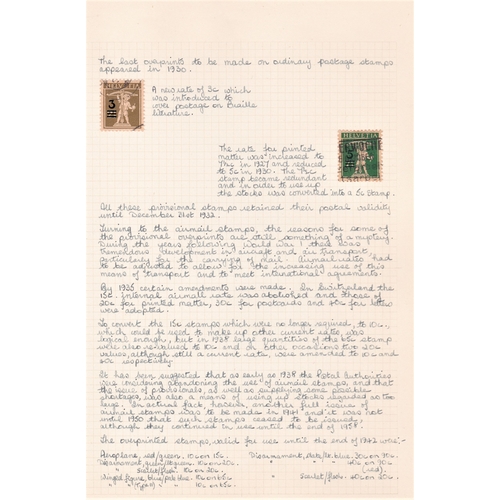 The last overprints to be made on ordinary postage stamps
appeared in 1930.
A new rate of 3c which
was introduced to
cover postage on Braille
literature.
HELVETIA
3
HELVETIA
The rate for printed
matter was increased to
7½c in 1927 and reduced
to 5c in 1930. The 7½c
stamp became redundant
and in order to use up
the stocks was converted into a 5c stamp.
All these provisional stamps retained their postal validity
until December 31st 1932.
Turning to the airmail stamps, the reasons for some of
the provisional overprints are still something of a mystery.
During the years following World War 1 there was
tremendous development in aircraft and air transport,
particularly in the carrying of mail. Airmail rates had
to be adjusted to allow for the increasing use of this
means of transport and to meet international agreements.
By 1935 certain amendments were made. In Switzerland the
15c. internal airmail rate was abolished and those of
20c for printed matter, 30c for postcards and 40c for letters
were adopted.
To convert the 15c stamps which were no longer required, to 10c.,
which could be used to make up other current rates, was
logical enough, but in 1938 large quantities of the 65c stamp
were also revalued to 10c and on other occasions two 20c
values, although still a current rate, were amended to 10c and
40c respectively.
It has been suggested that as early as 1938 the Postal Authorities
were considering abandoning the use of airmail stamps, and that
the issue of provisionals, as well as supplying some possible
shortages, was also a means of using up stocks regarded as too
large. In actual fact however, another full issue of
airmail stamps was to be made in 1941 and it was not
until 1950 that such stamps ceased to be issued,
although they continued in use until the end of 1958.
The overprinted stamps, valid for use until the end of 1942 were:-
Aeroplane, red/green, 10c on 15c.
Disarmament, 30c on 90c.
Disarmament, green/green, 10c on 20c.
40c on 90c
10c on 20c.
(red).
Winged figure, blue/pink, 10c on 65c.
Scarlet/flesh, 40c on 20c.
10c on 65c